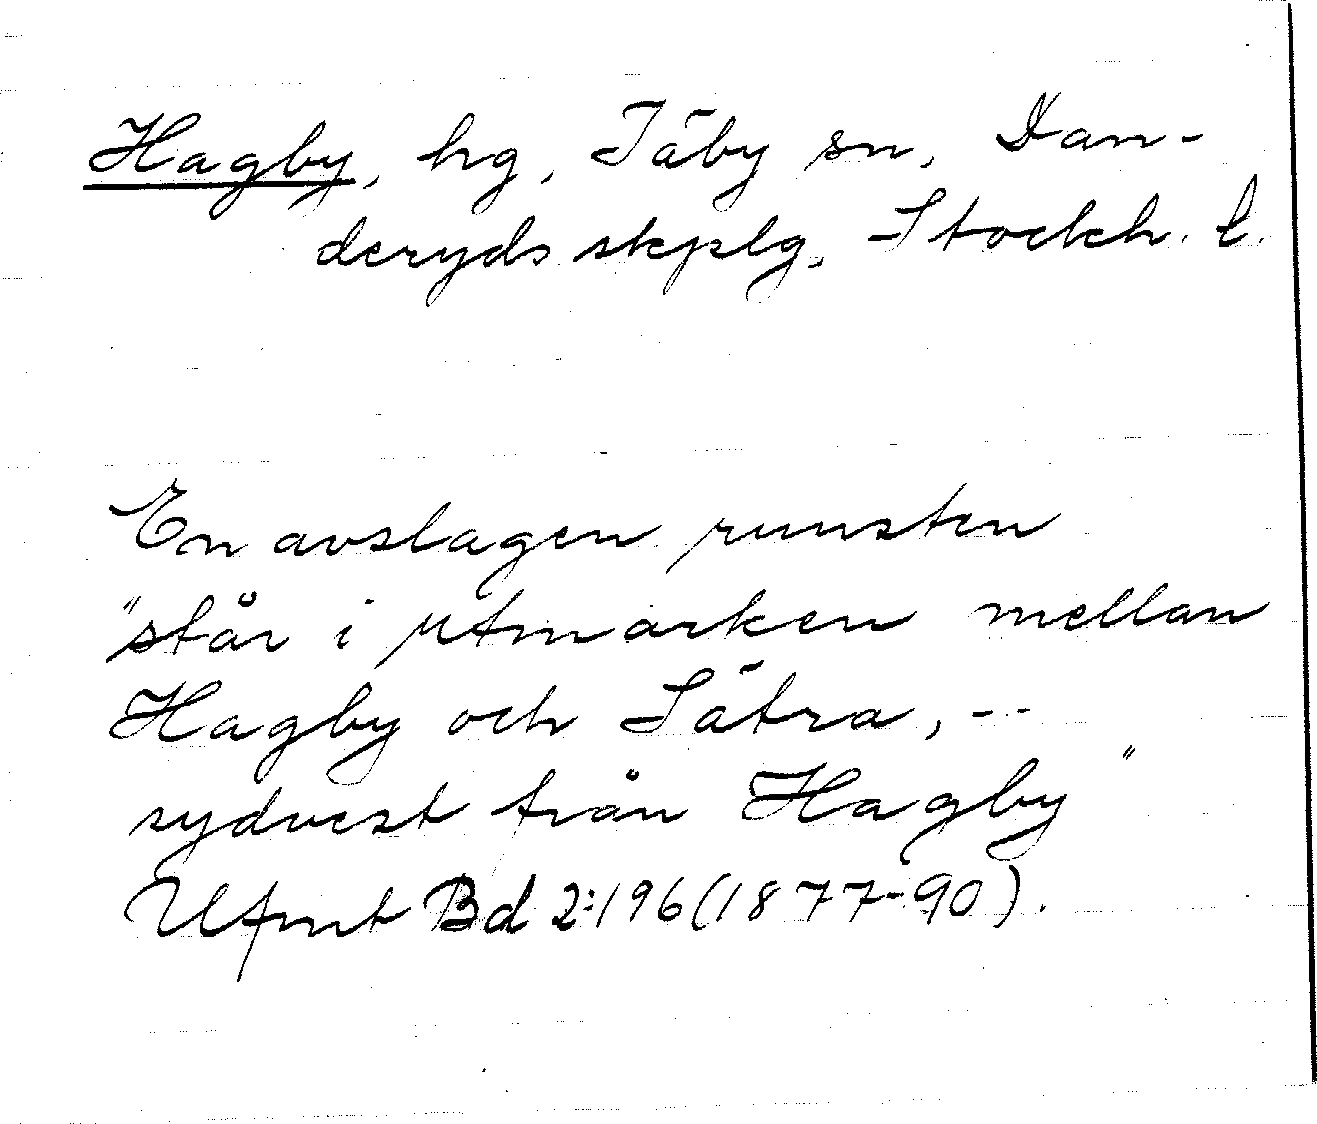 Hagby, hg, Täby sn, Dan-
deryds skplg, Stockh. l.
En avslagen runsten
"står i utmarken mellan
Hagby och Sätra, --
sydvest från Hagby"
Ufmt Bd 2:196 (1877-90).